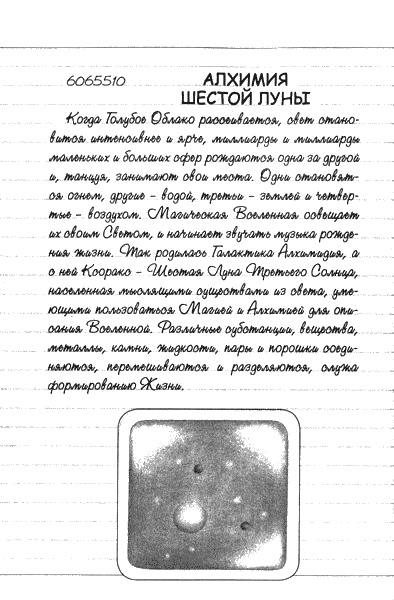 6065510
АЛХИМИЯ
ШЕСТОЙ ЛУНЫ
Когда Голубое Облако рассеивается, свет стано-
вится интенсивнее и ярче, миллиарды и миллиарды
маленьких и больших сфер рождаются одна за другой
и, танцуя, занимают свои места. Одни становят-
ся огнем, другие - водой, третьи - землей и четвер-
тые - воздухом. Магическая Вселенная освещает
их своим Светом, и начинает звучать музыка рожде-
ния жизни. Так родилась Галактика Алхимидия, а
с ней Ксоракс - Шестая Луна Третьего Солнца,
населенная мыслящими существами из света, уме-
ющими пользоваться Магией и Алхимией для опи-
сания Вселенной. Различные субстанции, вещества,
металлы, камни, жидкости, пары и порошки соеди-
няются, перемешиваются и разделяются, служа
формированию Жизни.